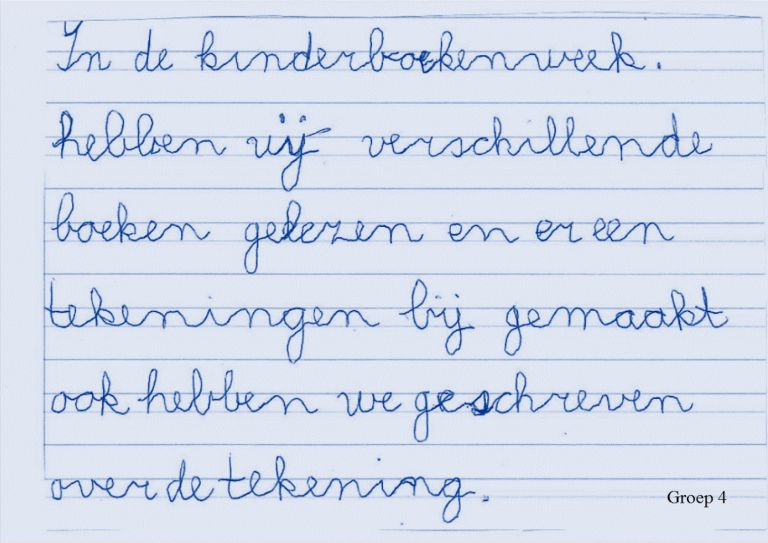 In de kinderboekenweek.
hebben wij verschillende
boeken gelezen en er een
tekeningen bij gemaakt
ook hebben we geschreven
over de tekening.
Groep 4